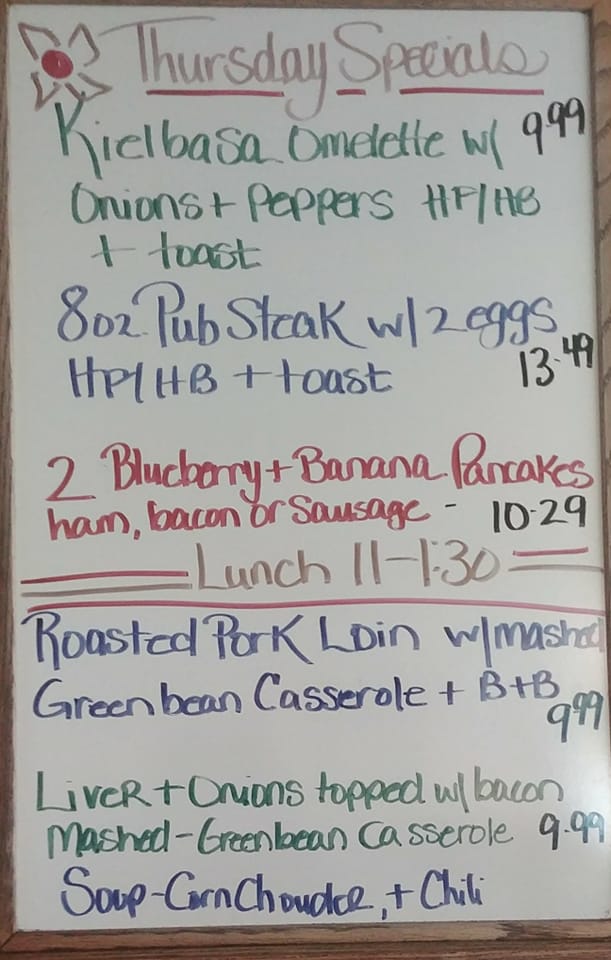 Thursday Specials
Kielbasa Omelette w/ 9.99
Onions + Peppers HF/HB
+ toast
8oz. Pub Steak w/ 2 eggs
HF/HB + toast 13.49
2 Blueberry + Banana Pancakes
ham, bacon or Sausage - 10.29
Lunch 11-1:30
Roasted Pork Loin w/mashed
Greenbean Casserole + B+B
9.99
Liver + Onions topped w/ bacon
Mashed - Greenbean Casserole 9.99
Soup - Corn Chowder, + Chili